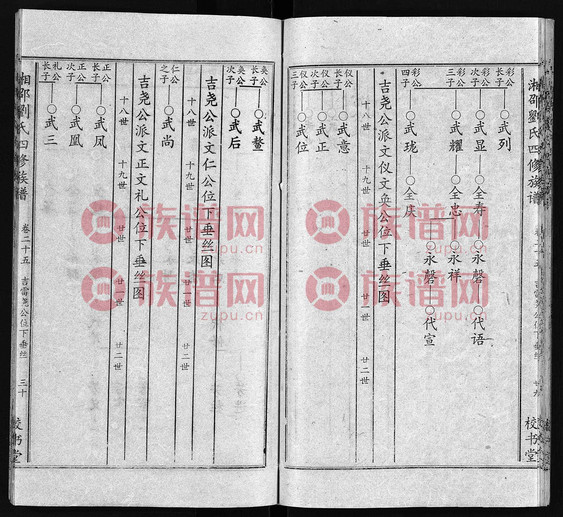 湘邵劉氏四修族谱
校书堂
彩公长子 ○武列
彩公次子 ○武显 ○全寿 ○永磬 ○代语
彩公三子 ○武耀 ○全忠 ○永祥
○永磬 ○代宣
彩公四子 ○武珑 ○全庆
十八世 十九世 廿世 廿一世 廿二世
吉尧公派文仪文奂公位下垂丝图
仪公长子 ○武意
仪公次子 ○武正
仪公三子 ○武位
奂公长子 ○武鳌
奂公次子 ○武后
吉尧公派文仁公位下垂丝图
十八世 十九世 廿世 廿一世 廿二世
仁公之子 ○武尚
吉尧公派文正文礼公位下垂丝图
十八世 十九世 廿世 廿一世 廿二世
正公长子 ○武凤
正公次子 ○武凰
礼公长子 ○武三
湘邵劉氏四修族谱 卷二十五 吉雷尧公位下垂丝 三十 校书堂
族谱网
zupu.cn
族谱网
zupu.cn
族谱网
zupu.cn
族谱网
zupu.cn